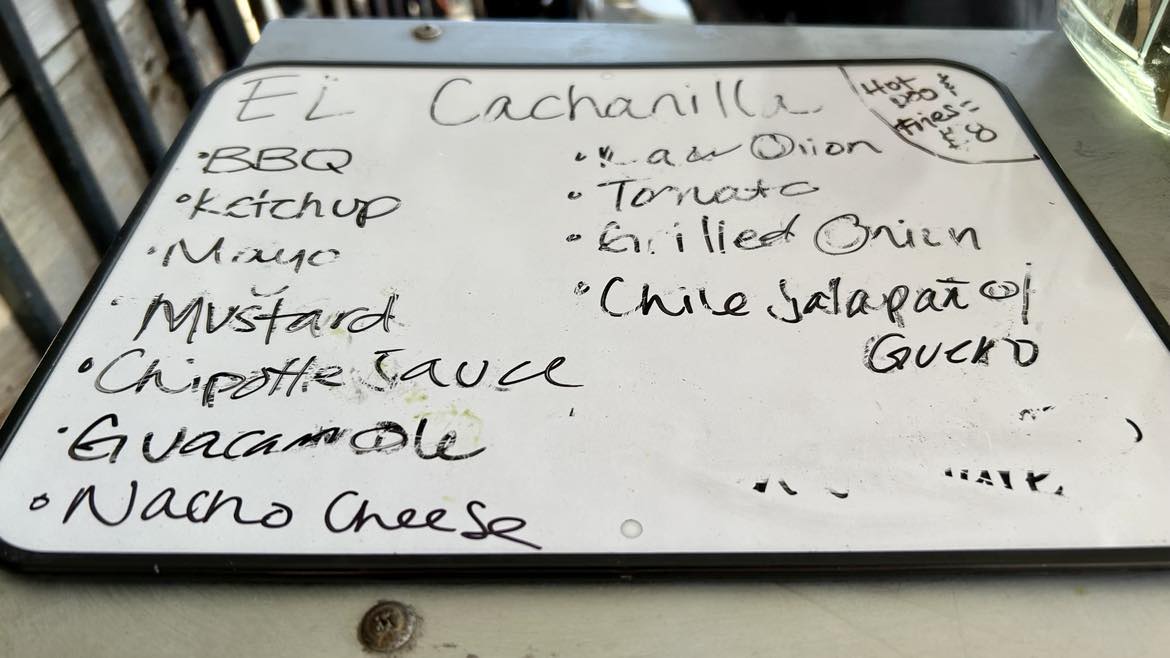 El Cachanilla
BBQ
Ketchup
Mayo
Mustard
Chipotle Sauce
Guacamole
Nacho Cheese
Raw Onion
Tomato
Grilled Onion
Chile Jalapaño/
Guero
Hot
Fries =